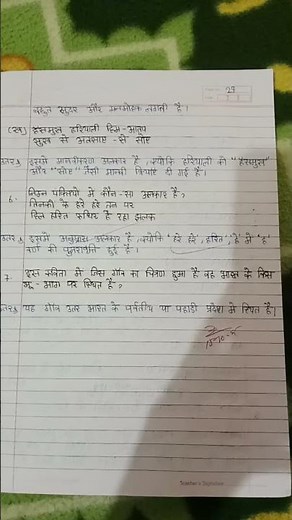 29
बहुत सुंदर और मनमोहक लगती है।
(ख) हँसमुख हरियाली हिम-आतप
सुख से अलसाए-से सोए
उत्तर इसमें मानवीकरण अलंकार है क्योंकि हरियाली को "हँसमुख"
और "सोए" जैसी मानवी क्रियाएँ दी गई है।
6. निम्न पंक्तियों में कौन-सा अलंकार है?
तिनकों के हरे हरे तन पर
हिल हरित रुधिर है रहा झलक
उत्तर इसमें अनुप्रास अलंकार है क्योंकि 'हरे हरे', हरित, है में 'ह'
वर्ण की पुनरावृत्ति हुई है।
7. इस कविता में जिस गाँव का चित्रण हुआ है वह भारत के किस
भू-भाग पर स्थित है?
उत्तर यह गाँव उत्तर भारत के पर्वतीय या पहाड़ी प्रदेश में स्थित है।
Teacher's Signature